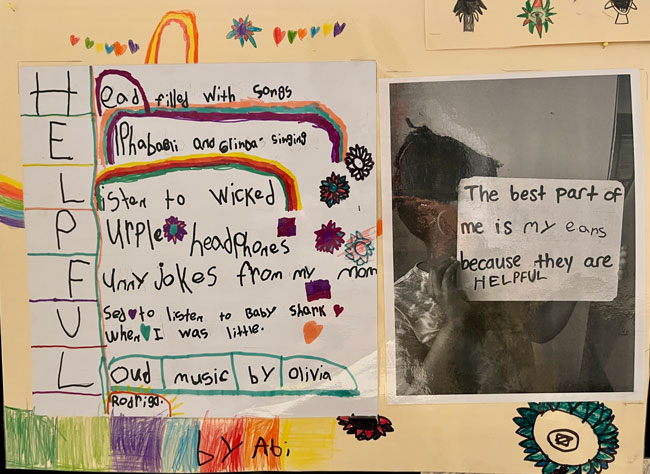 Head filled with songs
E and Glinda singing
Listen to wicked
Purple headphones
Funny jokes from my mom
Used to listen to Baby shark
when I was little.
Loud music by Olivia
Rodrigo.
by Abi
The best part of
me is my ears
because they are
HELPFUL